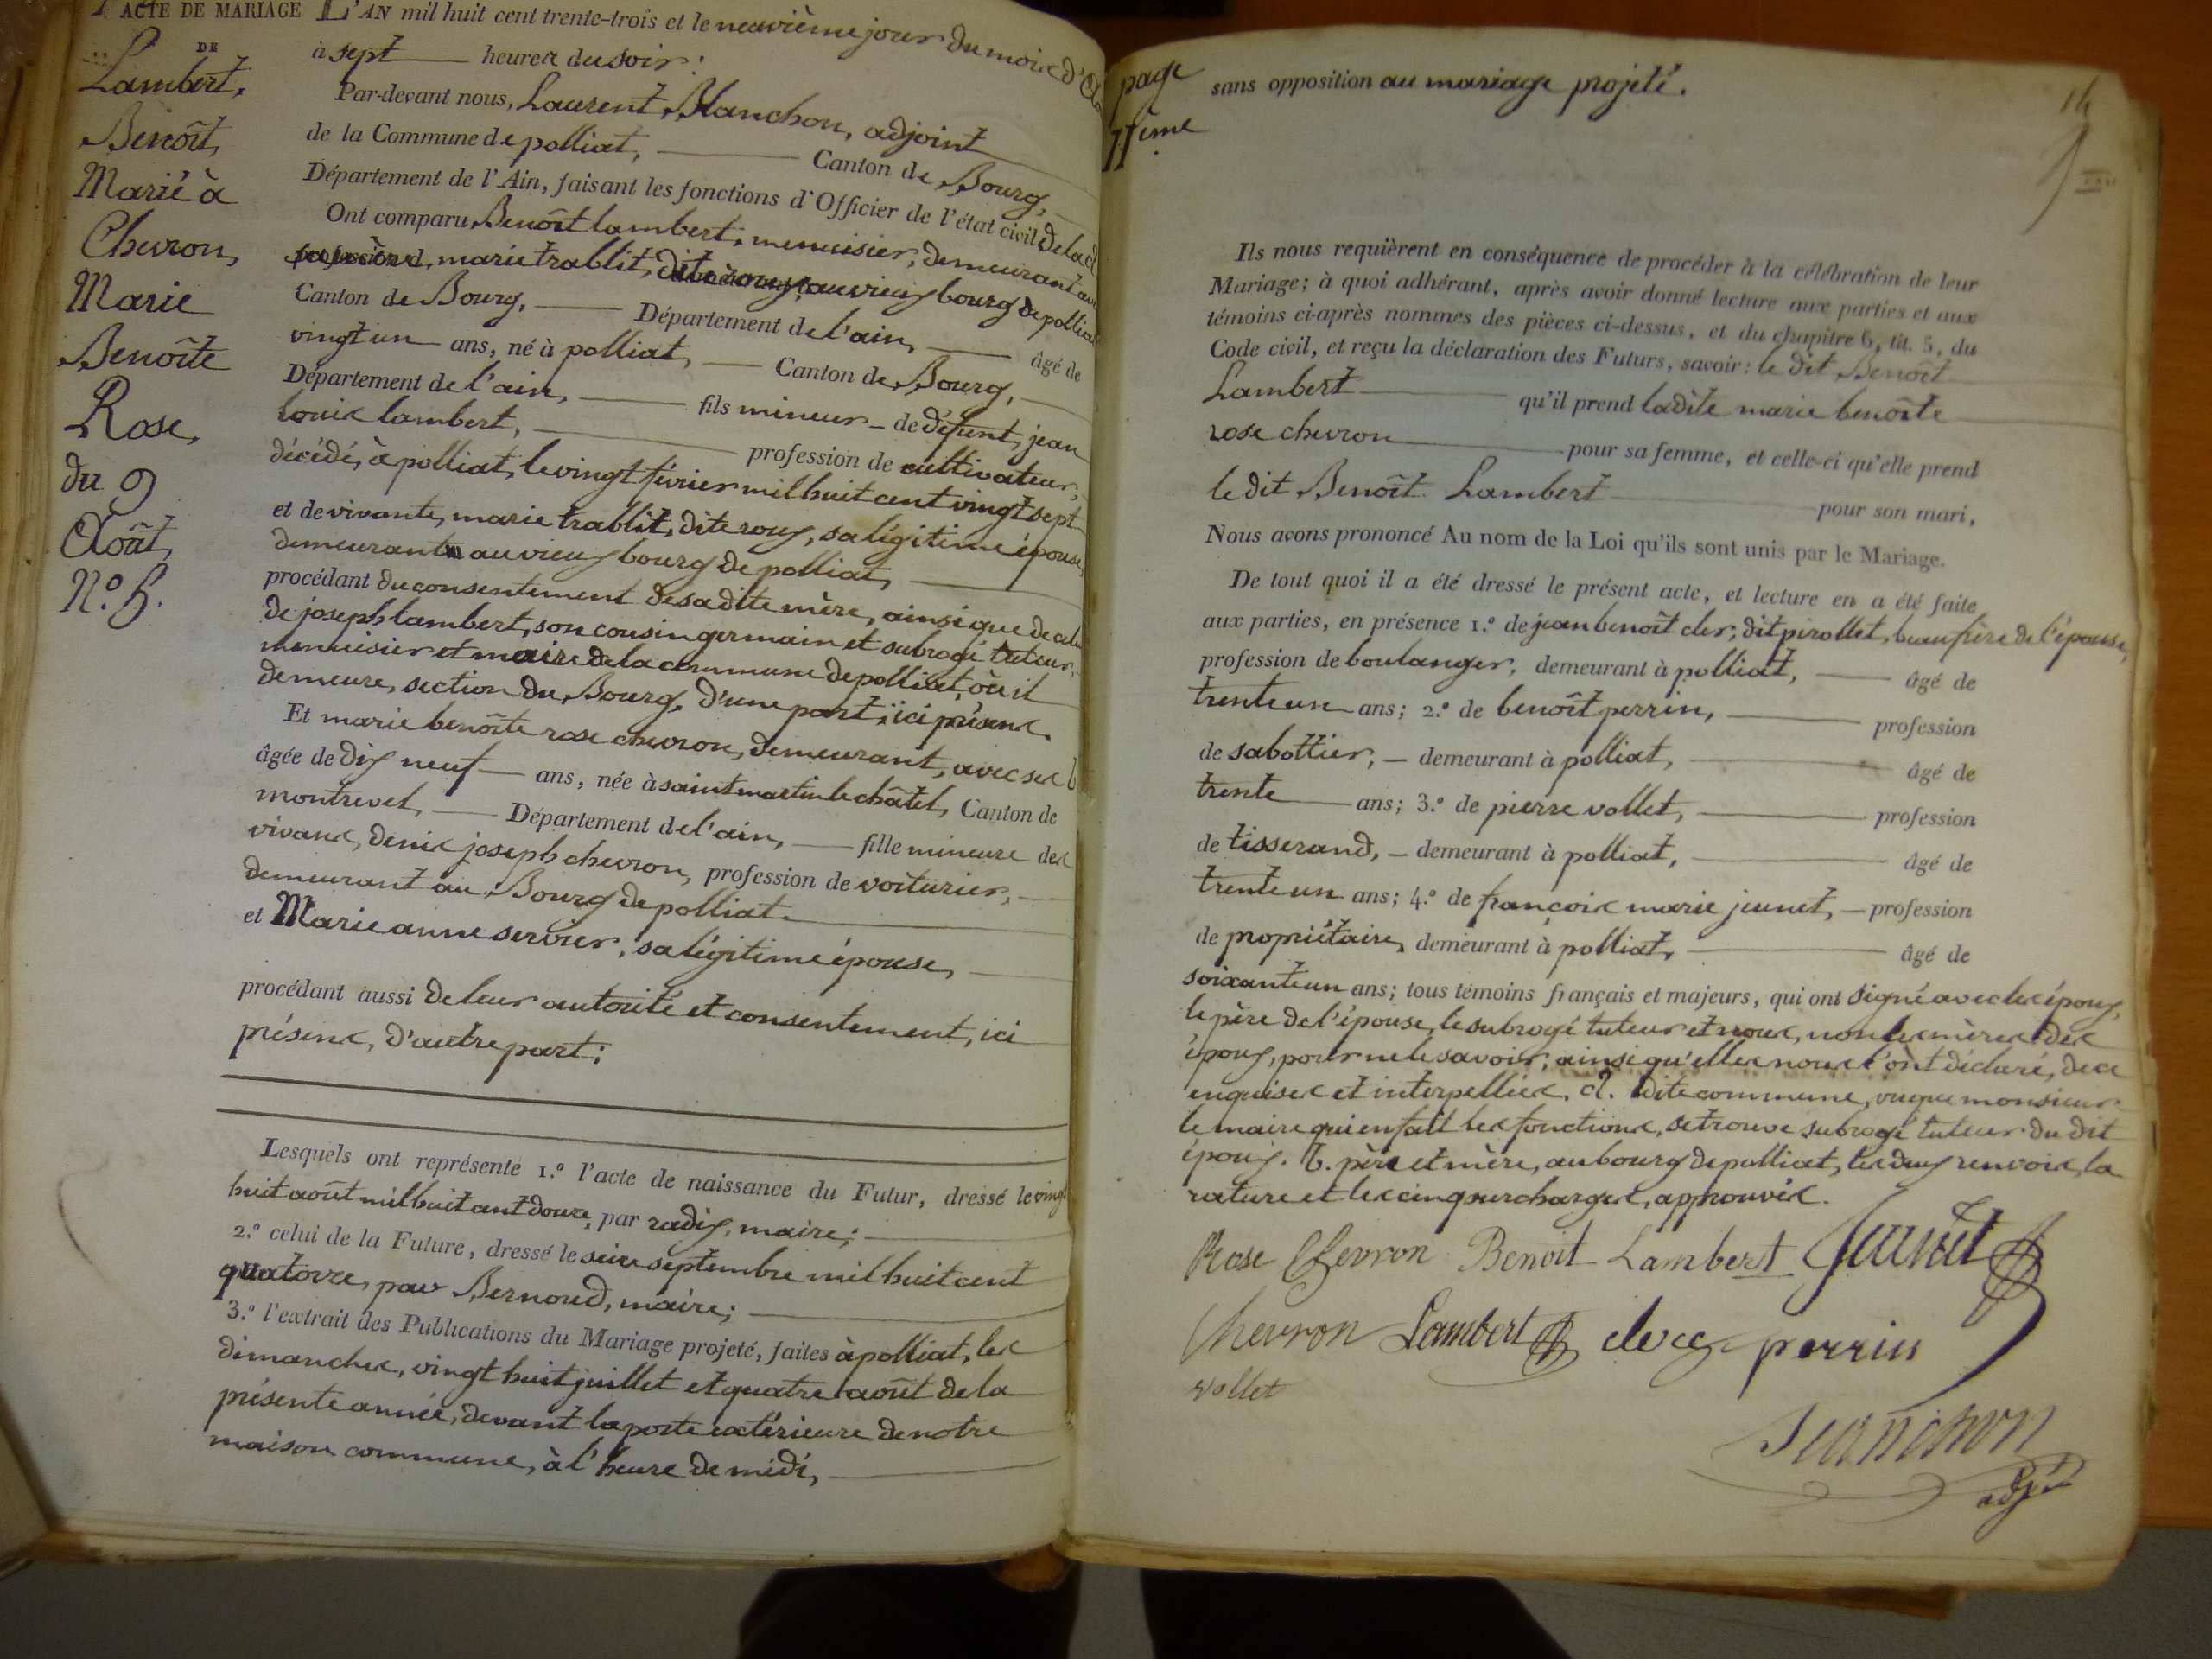 ACTE DE MARIAGE
DE
Lambert,
Benoît,
Marié à
Chevron,
Marie
Benoîte
Rose,
du 9
Août,
N.o 5.
L'AN mil huit cent trente-trois et le neuvième jour du mois d'
à sept heures du soir:
Par-devant nous, Laurent Blanchon, adjoint
de la Commune de polliat, Canton de Bourg,
Département de l'Ain, faisant les fonctions d'Officier de l'état civil de la
Ont comparu Benoît lambert, menuisier, demeurant au
marie trablit, dite roux, au vieux bourg de polliat
Canton de Bourg, Département de l'ain, âgé de
vingt un ans, né à polliat, Canton de Bourg,
Département de l'ain, fils mineur de défunt, jean
louis lambert, profession de cultivateur,
décédé, à polliat, le vingt février mil huit cent vingt sept
et de vivante, marie trablit, dite roux, sa légitime épouse,
demeurante au vieux bourg de polliat,
procédant du consentement de sa dite mère, ainsi que de celui
de joseph lambert, son cousin germain et subrogé tuteur,
menuisier et maire de la commune de polliat, où il
demeure, section du Bourg, d'une part, ici présens.
Et marie benoîte rose chevron, demeurant, avec ses b
âgée de dix neuf ans, née à saint martin le châtel, Canton de
montrevel, Département de l'ain, fille mineure des
vivans, denis joseph chevron, profession de voiturier,
demeurant au Bourg de polliat.
et Marie anne servier, sa légitime épouse,
procédant aussi de leur autorité et consentement, ici
présens, d'autre part;
Lesquels ont représenté 1.o l'acte de naissance du Futur, dressé le vingt
huit août mil huit cent douze, par radix, maire;
2.o celui de la Future, dressé le seize septembre mil huit cent
quatorze, par Bernoud, maire;
3.o l'extrait des Publications du Mariage projeté, faites à polliat, les
dimanches, vingt huit juillet et quatre août de la
présente année, devant la porte extérieure de notre
maison commune, à l'heure de midi,
page
11ème
sans opposition au mariage projeté.
Ils nous requièrent en conséquence de procéder à la célébration de leur
Mariage; à quoi adhérant, après avoir donné lecture aux parties et aux
témoins ci-après nommés des pièces ci-dessus, et du chapitre 6, tit. 5, du
Code civil, et reçu la déclaration des Futurs, savoir: le dit Benoît
Lambert qu'il prend ladite marie benoîte
rose chevron pour sa femme, et celle-ci qu'elle prend
le dit Benoît Lambert pour son mari,
Nous avons prononcé Au nom de la Loi qu'ils sont unis par le Mariage.
De tout quoi il a été dressé le présent acte, et lecture en a été faite
aux parties, en présence 1.o de jean benoît cler, dit pirollet, beaufrère de l'épouse,
profession de boulanger, demeurant à polliat, âgé de
trente un ans; 2.o de benoît perrin, profession
de sabottier, demeurant à polliat, âgé de
trente ans; 3.o de pierre vollet, profession
de tisserand, demeurant à polliat, âgé de
trente un ans; 4.o de françois marie jeunet, profession
de propriétaire, demeurant à polliat, âgé de
soixante un ans; tous témoins français et majeurs, qui ont signé avec les époux,
le père de l'épouse, le subrogé tuteur et nous, non les mères des
époux, pour ne le savoir, ainsi qu'elles nous l'ont déclaré, de ce
enquises et interpellées. a. dite commune, vu que monsieur
le maire qui en fait les fonctions, se trouve subrogé tuteur du dit
époux. b. père et mère, au bourg de polliat, les deux renvois, la
rature et les cinq surcharges, approuvés.
Rose Chevron Benoit Lambert Jeunet
Chevron Lambert perrin
vollet
Blanchon
adjt